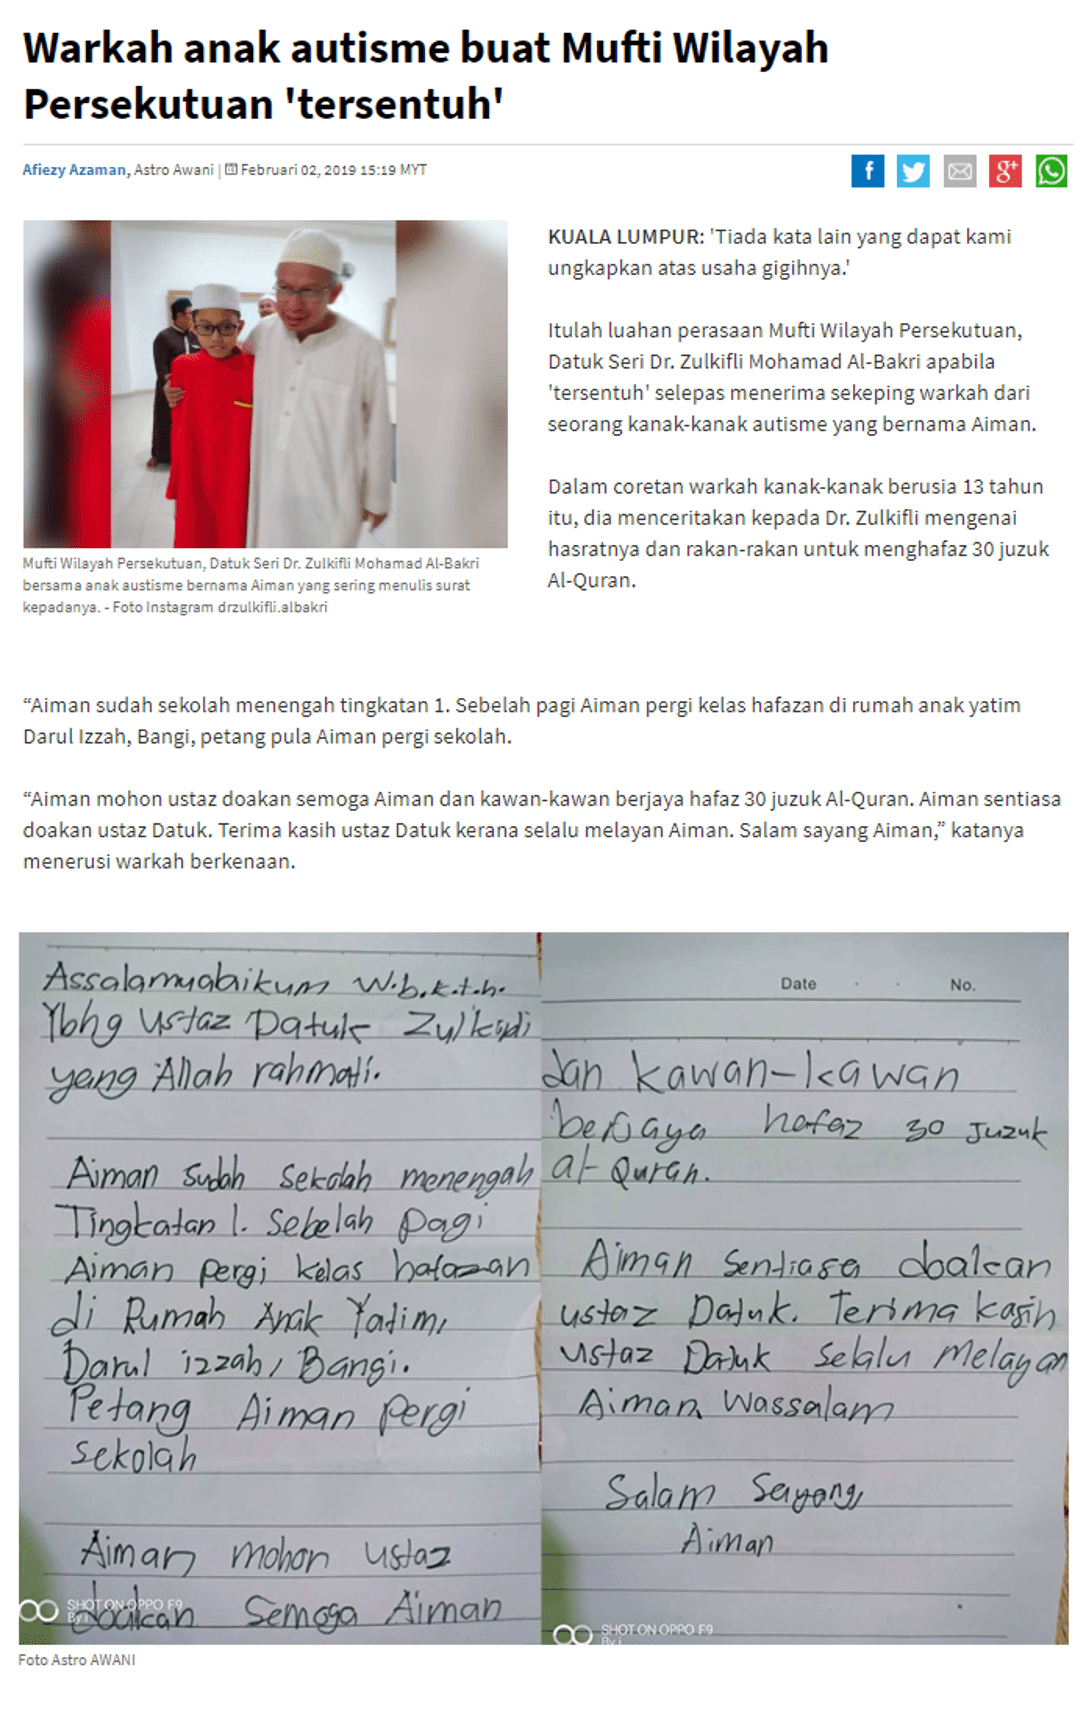 Warkah anak autisme buat Mufti Wilayah
Persekutuan 'tersentuh'
Afiezy Azaman, Astro Awani | Februari 02, 2019 15:19 MYT
Mufti Wilayah Persekutuan, Datuk Seri Dr. Zulkifli Mohamad Al-Bakri
bersama anak austisme bernama Aiman yang sering menulis surat
kepadanya. - Foto Instagram drzulkifli.albakri
KUALA LUMPUR: 'Tiada kata lain yang dapat kami
ungkapkan atas usaha gigihnya.'
Itulah luahan perasaan Mufti Wilayah Persekutuan,
Datuk Seri Dr. Zulkifli Mohamad Al-Bakri apabila
'tersentuh' selepas menerima sekeping warkah dari
seorang kanak-kanak autisme yang bernama Aiman.
Dalam coretan warkah kanak-kanak berusia 13 tahun
itu, dia menceritakan kepada Dr. Zulkifli mengenai
hasratnya dan rakan-rakan untuk menghafaz 30 juzuk
Al-Quran.
“Aiman sudah sekolah menengah tingkatan 1. Sebelah pagi Aiman pergi kelas hafazan di rumah anak yatim
Darul Izzah, Bangi, petang pula Aiman pergi sekolah.
“Aiman mohon ustaz doakan semoga Aiman dan kawan-kawan berjaya hafaz 30 juzuk Al-Quran. Aiman sentiasa
doakan ustaz Datuk. Terima kasih ustaz Datuk kerana selalu melayan Aiman. Salam sayang Aiman,” katanya
menerusi warkah berkenaan.
Assalamualaikum W.b.k.t.h.
Ybhg Ustaz Datuk
yang Allah rahmati.
Aiman sudah sekolah menengah
Tingkatan 1. Sebelah pagi
Aiman pergi kelas hafazan
di Rumah Anak Yatim,
Darul izzah, Bangi.
Petang Aiman pergi
sekolah
Aiman mohon ustaz
doakan Semoga Aiman
SHOT ON OPPO F9
Date No.
dan kawan-kawan
berjaya hafaz 30 Juzuk
al-Quran.
Aiman Sentiasa doakan
ustaz Datuk. Terima kasih
ustaz Datuk selalu melayan
Aiman. Wassalam
Salam Sayang,
Aiman
SHOT ON OPPO F9
Foto Astro AWANI